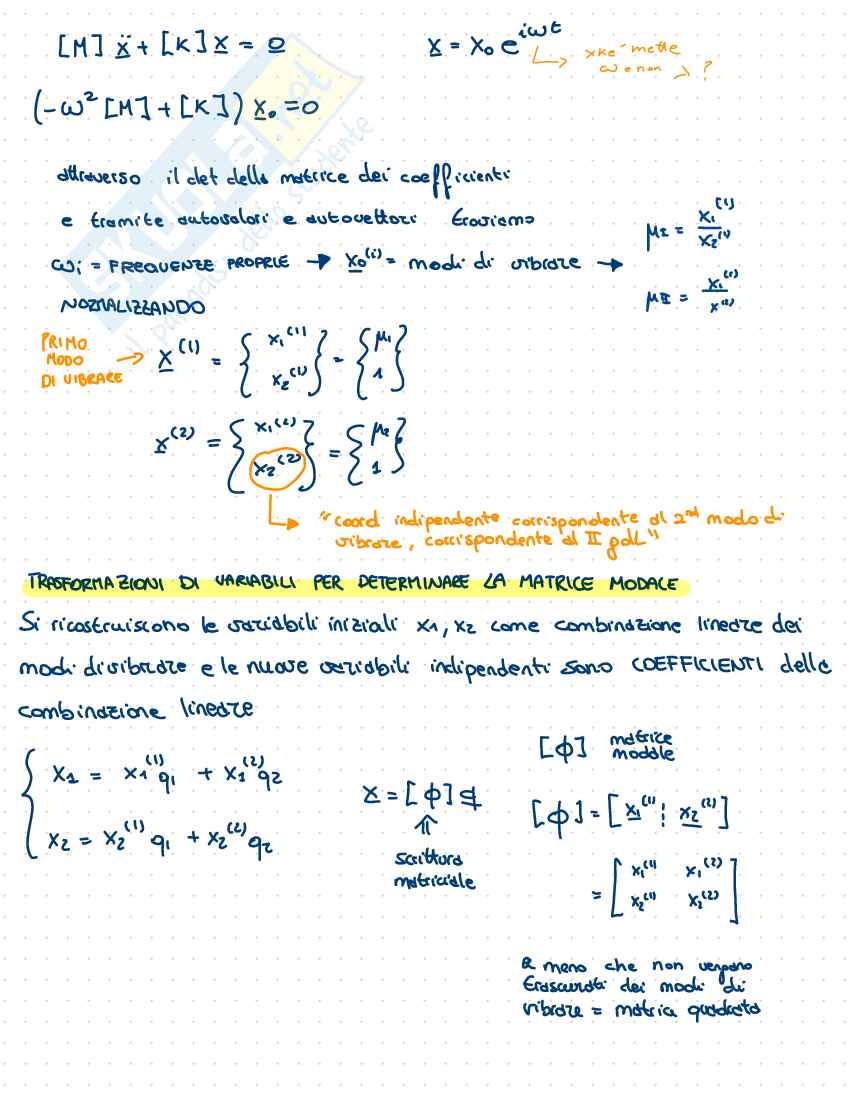 [M] ẍ + [K] x = 0
x = x₀ e^{iωt}
xke' mette
ω e non λ ?
(-ω² [M] + [K]) x₀ = 0
attraverso il det della matrice dei coefficienti
e tramite autovalori e autovettori troviamo
ωᵢ = FREQUENZE PROPRIE → x₀⁽ⁱ⁾ = modi di vibrare →
μI = x₁⁽¹⁾ / x₂⁽¹⁾
μII = x₁ / x⁽²⁾
NORMALIZZANDO
PRIMO
MODO
DI VIBRARE
→ x⁽¹⁾ = { x₁⁽¹⁾ x₂⁽¹⁾ } = { μ₁ 1 }
x⁽²⁾ = { x₁⁽²⁾ x₂⁽²⁾ } = { μ₂ 1 }
"coord indipendente corrispondente al 2nd modo di
vibrare, corrispondente al II gdL"
TRASFORMAZIONI DI VARIABILI PER DETERMINARE LA MATRICE MODALE
Si ricostruiscono le variabili iniziali x₁, x₂ come combinazione lineare dei
modi di vibrare e le nuove variabili indipendenti sono COEFFICIENTI della
combinazione lineare
x₁ = x₁⁽¹⁾ q₁ + x₁⁽²⁾ q₂
x₂ = x₂⁽¹⁾ q₁ + x₂⁽²⁾ q₂
x = [ϕ] q
⇑
scrittura
matriciale
[ϕ] matrice
modale
[ϕ] = [ x₁⁽¹⁾ ⋮ x₂⁽²⁾ ]
= [ x₁⁽¹⁾ x₁⁽²⁾
x₂⁽¹⁾ x₂⁽²⁾ ]
a meno che non vengano
trascurati dei modi di
vibrare = matrice quadrata
skuola.net
il paradiso dello studente